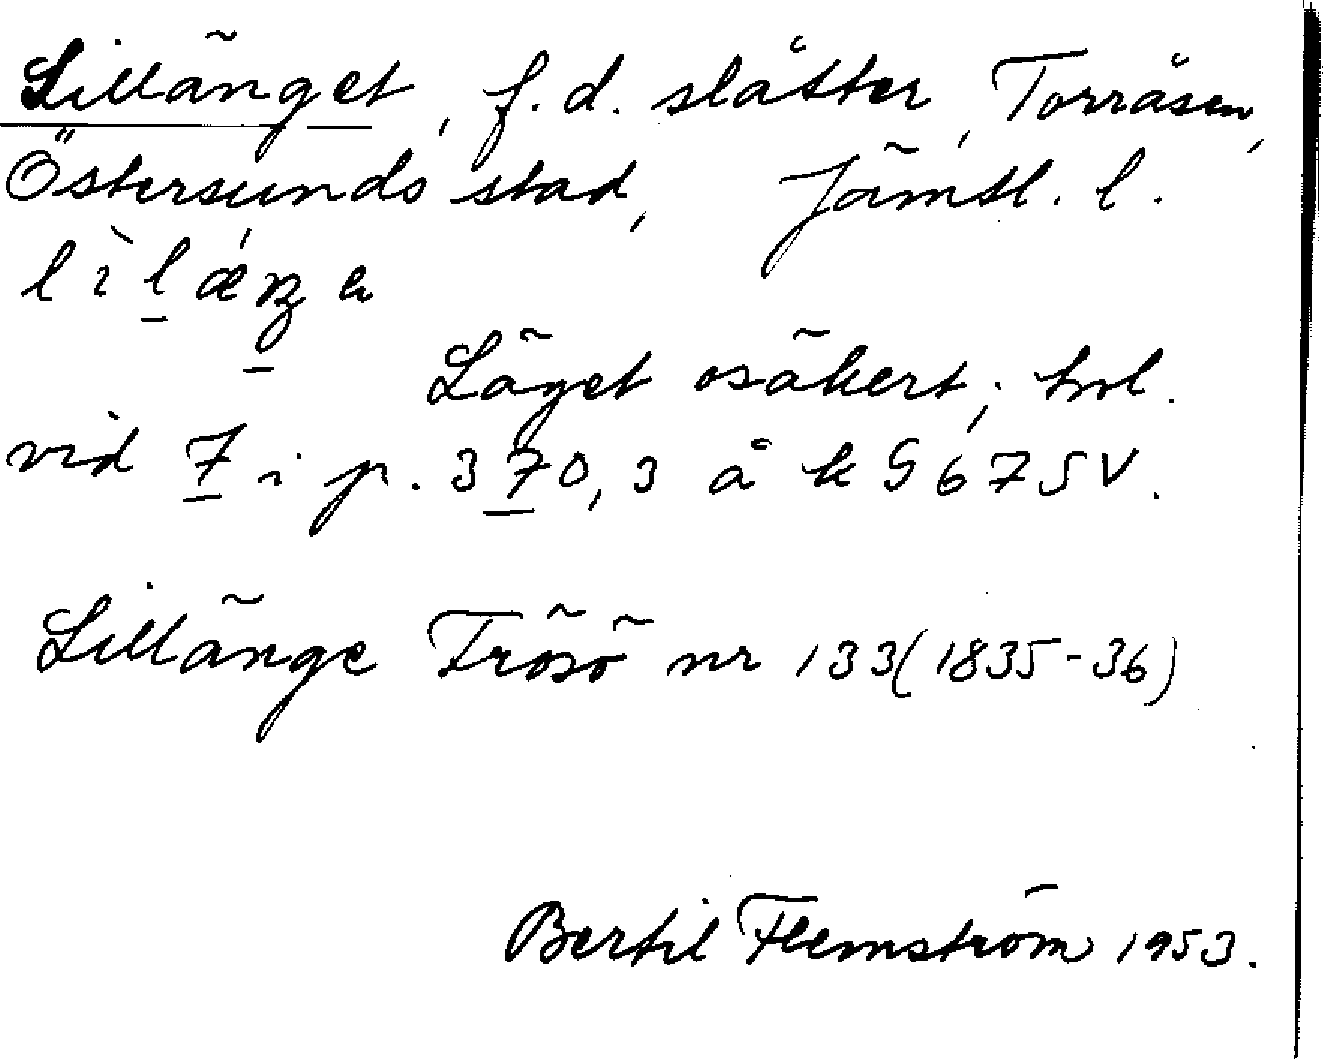 Lillänget, f.d. slåtter, Torråsen,
Östersunds stad, Jämtl. l.
lìlǽŋe
Läget osäkert; trol.
vid 7 i p. 370,3 å k G 67 SV.
Lillänge Frösö nr 133 (1835-36)
Bertil Flemström 1953.